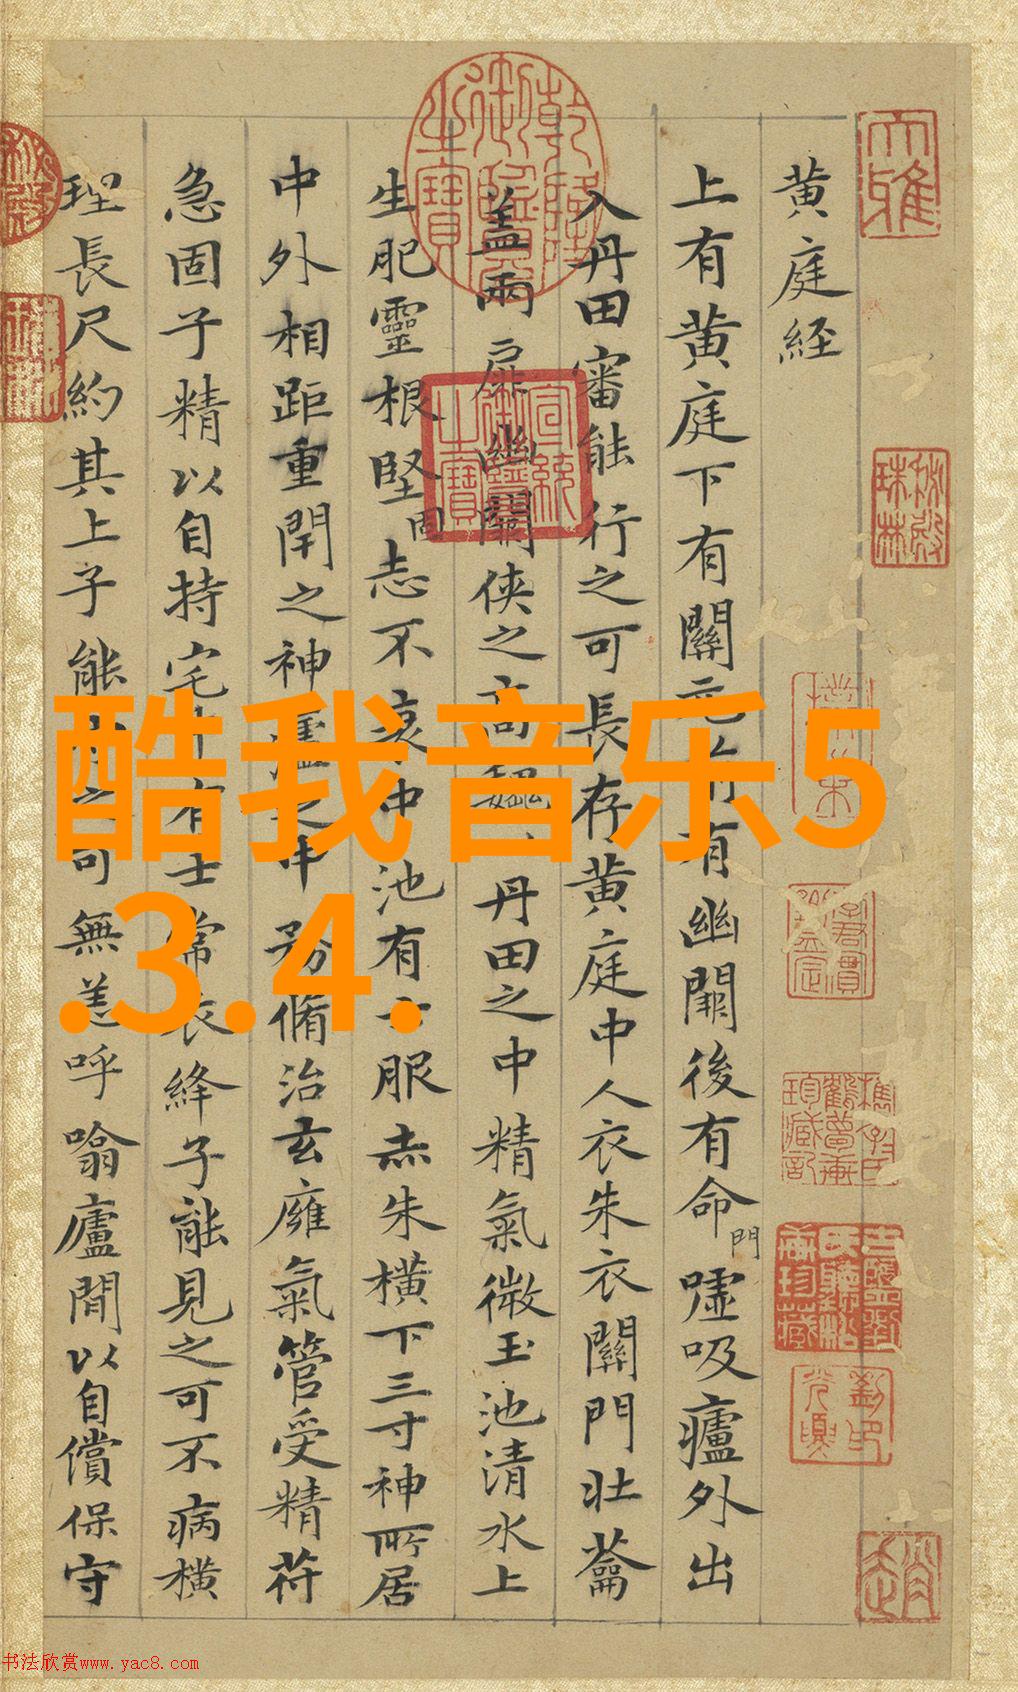 黄庭経
上有黄庭下有關元前有幽闕後有命門嘘吸廬外出
入丹田審能行之可長存黄庭中人衣朱衣關門壯蘥
蓋兩扉幽闕俠之高巍丹田之中精氣微玉池清水上
生肥靈根堅固志不衰中池有士服赤朱横下三寸神所居
中外相距重閉之神廬之中務脩治玄癰氣管受精符
急固子精以自持宅中有士常衣絳子能見之可不病横
理長尺約其上子能守之可無恙呼噏廬間以自償保守
酷我音乐5
.3.4.
书法欣赏www.yac8.com